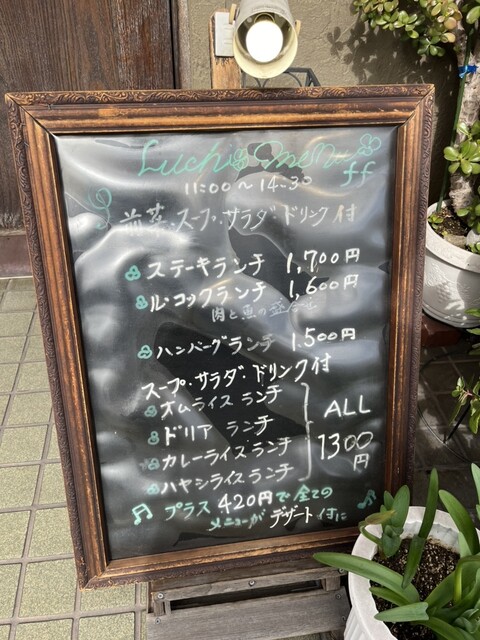 Luch menu
ff
11:00~14:30
前菜・スープ・サラダ・ドリンク付
ステーキランチ 1,700円
ル・コックランチ 1,600円
肉と魚の盛合せ
ハンバーグランチ 1.500円
スープ・サラダ・ドリンク付
オムライスランチ
ドリアランチ
カレーライスランチ
ハヤシライスランチ
ALL
1300
円
プラス420円で全ての
メニューがデザート付に